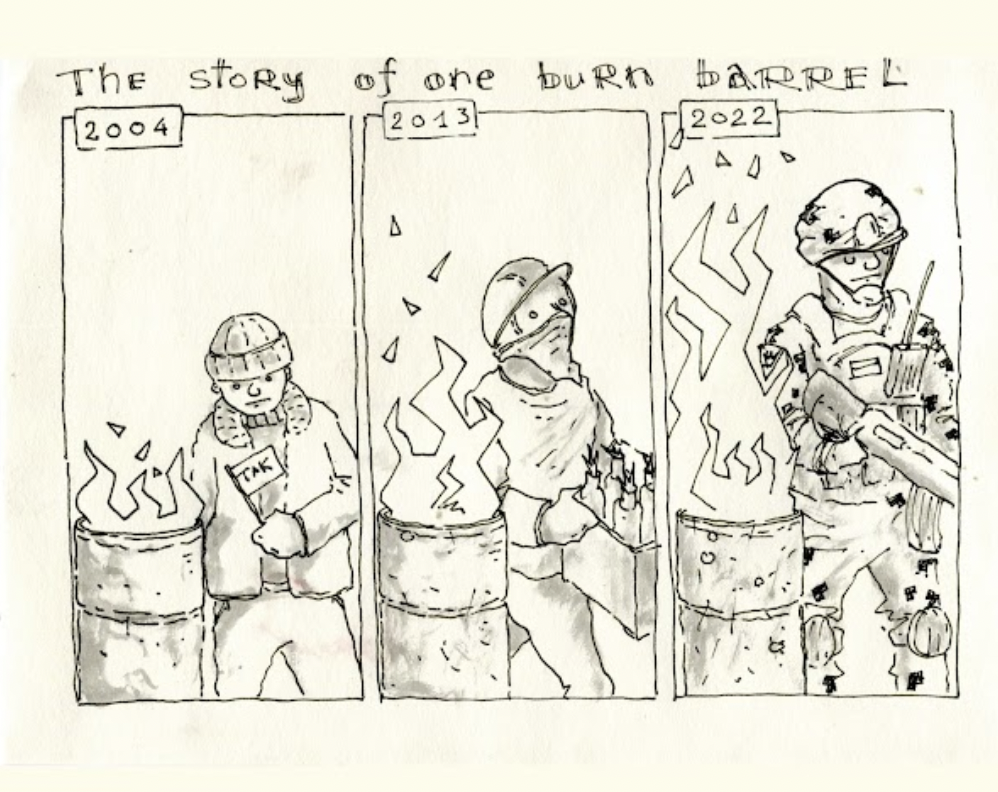 The story of one burn barrel
2004
2013
2022
ТАК